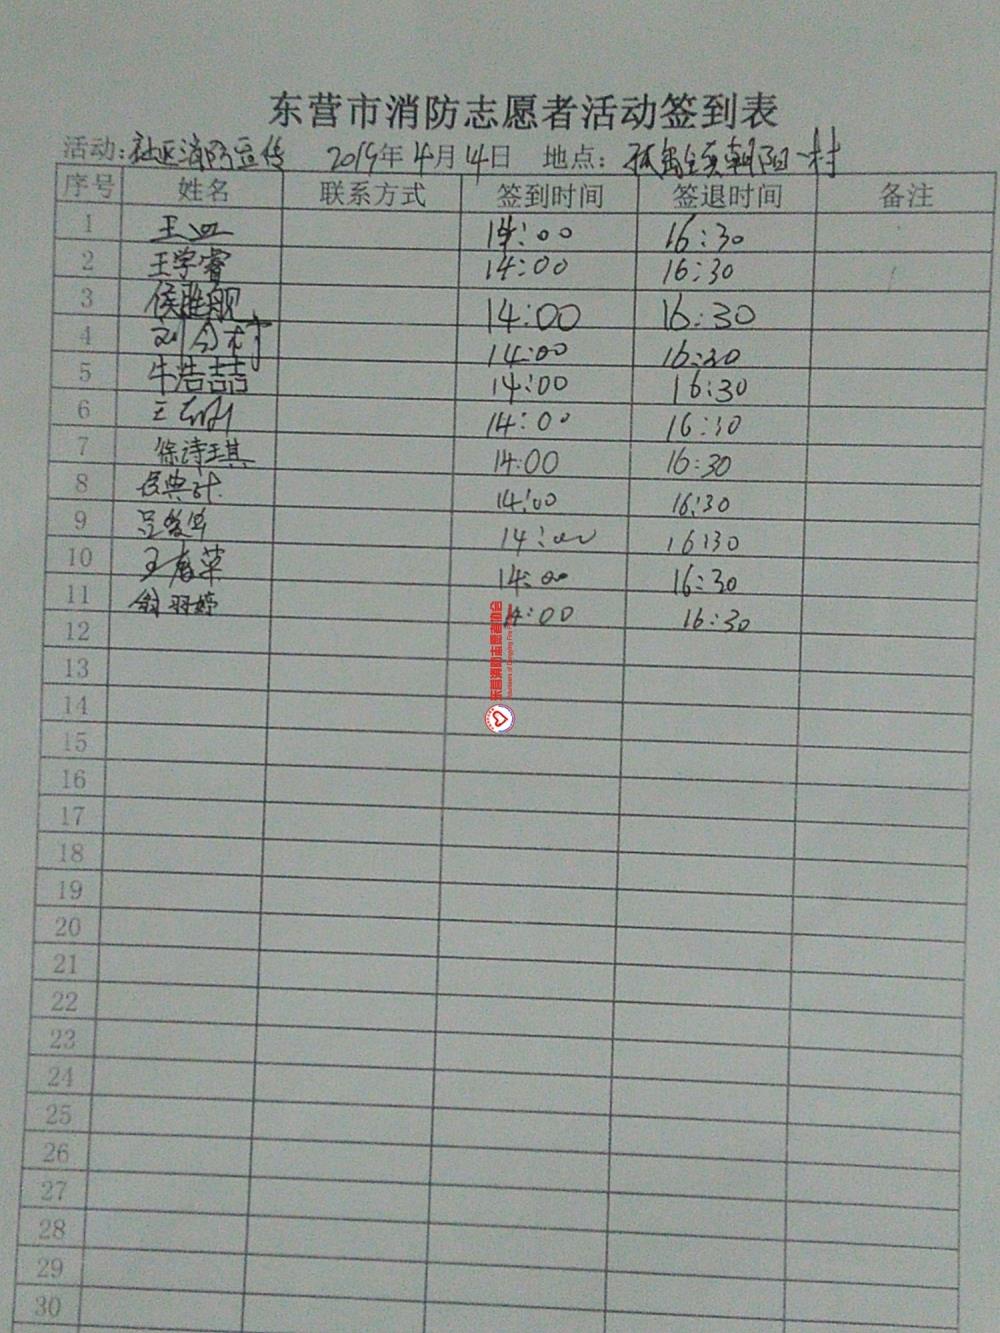 东营市消防志愿者活动签到表
活动:社区消防宣传 2019年4月14日 地点:孤岛镇朝阳一村
序号 姓名 联系方式 签到时间 签退时间 备注
1 14:00 16:30
2 王学睿 14:00 16:30
3 侯胜舰 14:00 16:30
4 14:00 16:30
5 牛浩喆 14:00 16:30
6 14:00 16:30
7 徐诗琪 14:00 16:30
8 14:00 16:30
9 14:00 16:30
10 王春革 14:00 16:30
11 翁羽婷 14:00 16:30
12
13
14
15
16
17
18
19
20
21
22
23
24
25
26
27
28
29
30
东营消防志愿者协会